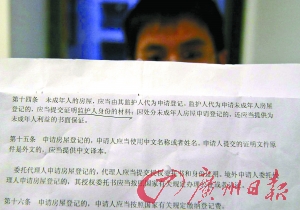 第十四条 未成年人的房屋，应当由其监护人代为申请登记。监护人代为申请未成年人房屋
登记的，应当提交证明监护人身份的材料；因处分未成年人房屋申请登记的，还应当提供为
未成年人利益的书面保证。
第十五条 申请房屋登记的，申请人应当使用中文名称或者姓名。申请人提交的证明文件原
件是外文的，应当提供中文译本。
委托代理人申请房屋登记的，代理人应当提交授权委托书和身份证明。境外申请人委托
代理人申请房屋登记的，其授权委托书应当按国家有关规定办理
第十六条 申请房屋登记的，申请人应当按照国家有关规定缴纳登记费。
广州日报